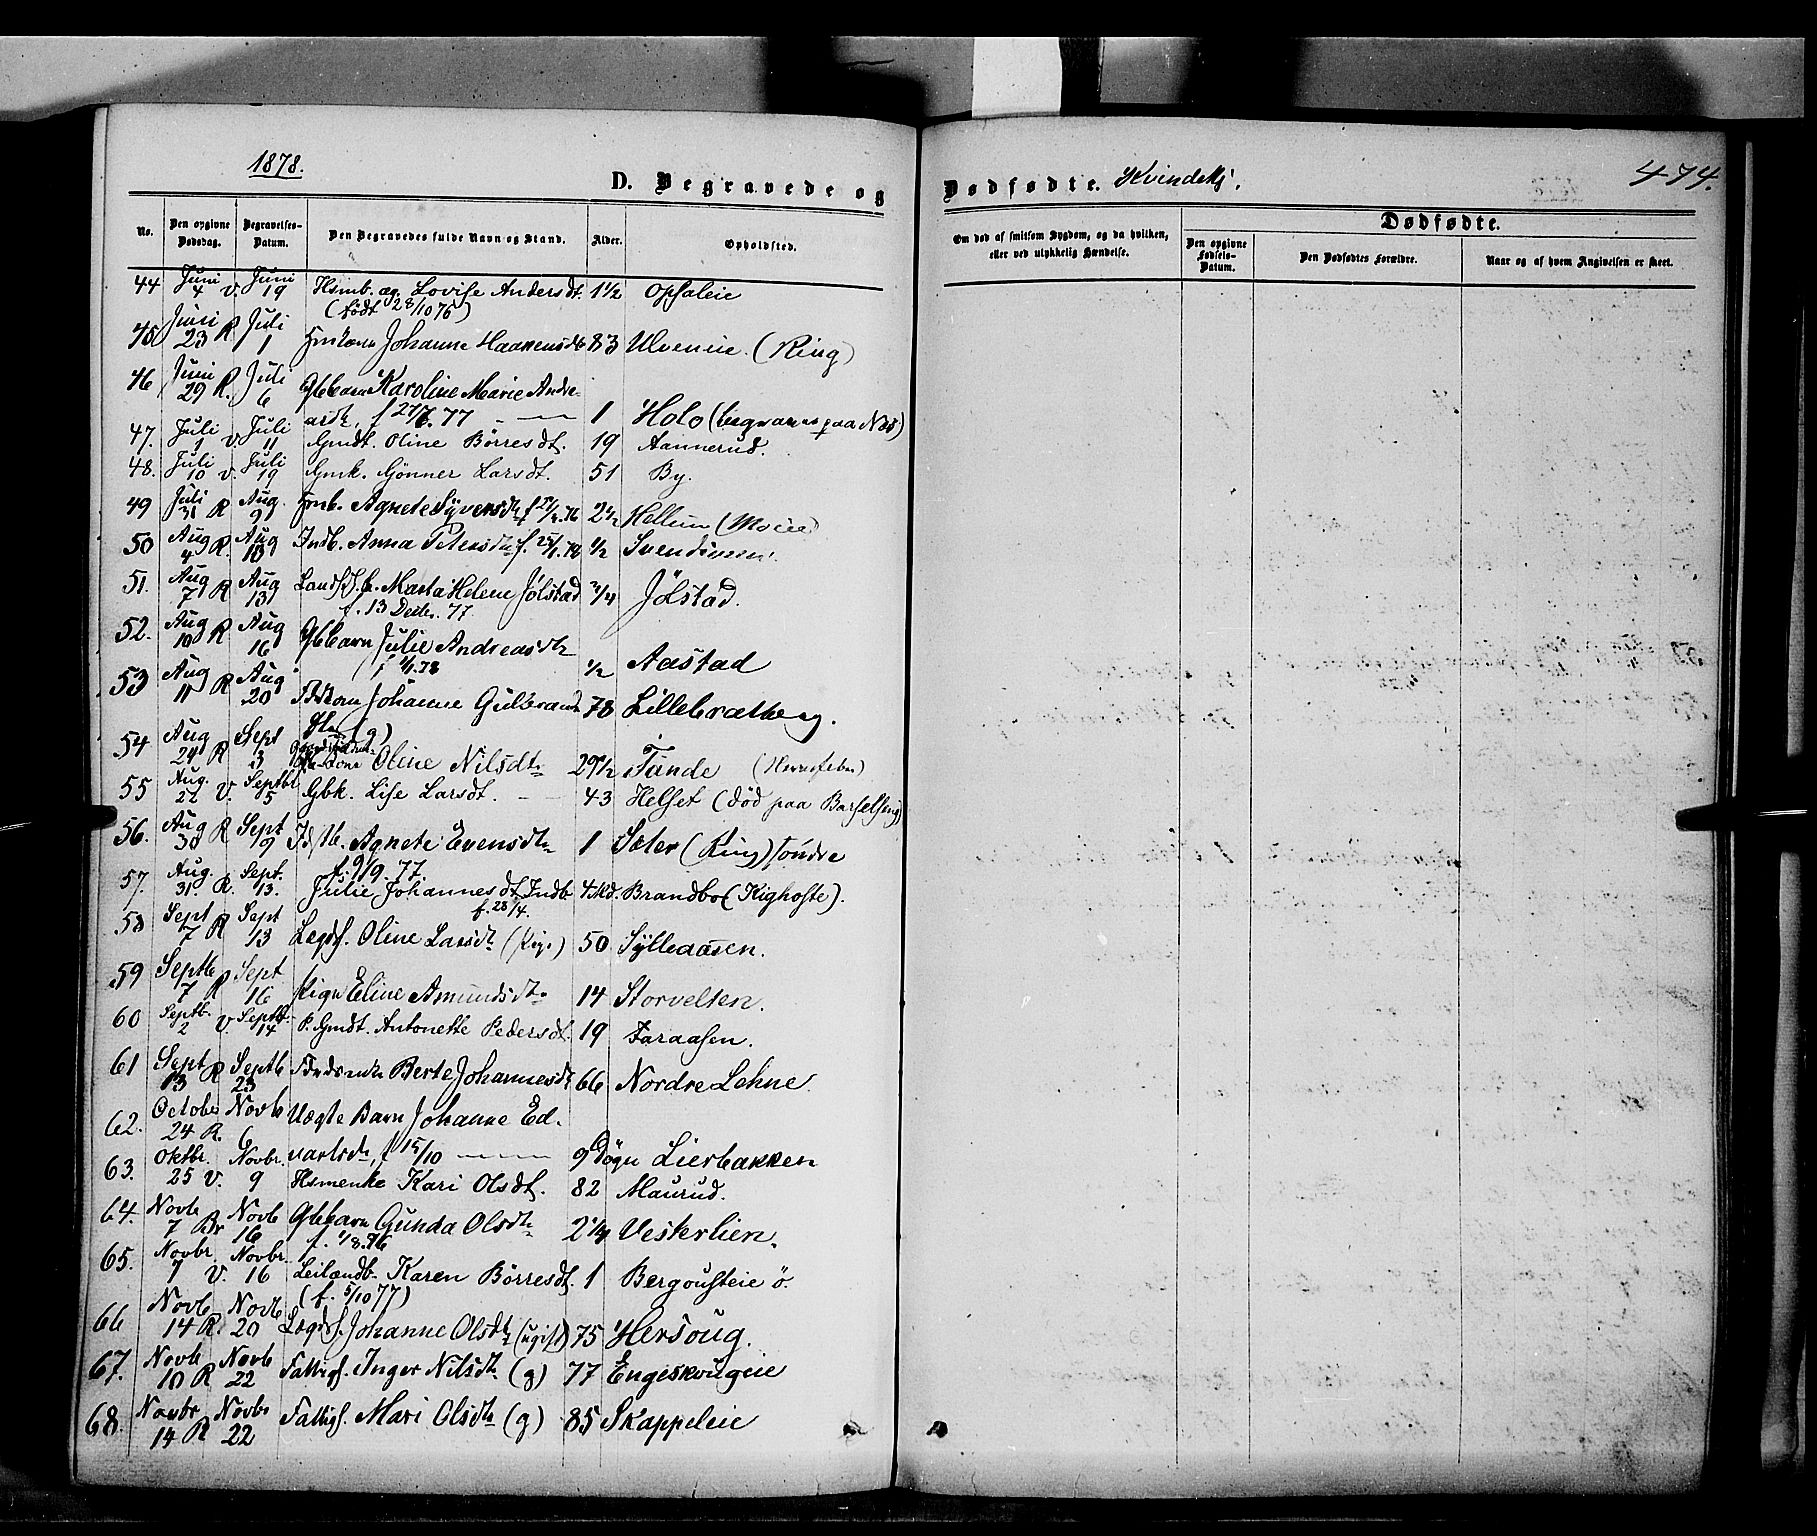 1878.
D. Begravede og
Dødfødte. Kvindekj.
474.
No.
Den opgivne Dødsdag.
Begravelses-Datum.
Den Begravedes fulde Navn og Stand.
Alder.
Opholdsted.
Om død af smitsom Sygdom, og da hvilken, eller ved ulykkelig Hændelse.
Dødfødte.
Den opgivne Fødsels-Datum.
Den Dødfødtes Forældre.
Naar og af hvem Angivelsen er skeet.
44 Juni 4 V. Juni 19 Hsmb. æg. Lovise Andersdt. 1½ Opsaleie
(født 28/10 76)
45 Juni 23 R Juli 1 Johanne Haakensdt 83 Ulveneie (Ring)
46 Juni 29 R. Juli 6 Gbbarn Karoline Marie Andre-
asdt, f 77 — 1 Holo (begraves paa Næs)
47. Juli 1 V. Juli 11 Gmdt. Oline Børresdt. 19 Aannerud.
48. Juli 10 V. Juli 19 Gmk. Gönner Larsdt. 51 By.
49 Juli 31 R Aug. 9 Hmb. Agnete Syversdt f 76 2½ Hellum (Moeie)
50 Aug 4 R. Aug 10 Indb. Anna Petersdt f. 78 ½ Svend
51. Aug 7 R Aug 13 Marta Helene Jølstad ¾ Jølstad.
f. 13 Decbr. 77
52. Aug 10 R Aug 16 Gbbarn Julie Andreasdt
f 1/1.78 ½ Aastad
53 Aug 11 R Aug 20 Johanne Gulbrands 78 Lillebrætberg.
(g)
54 Aug 24 R Sept 3 Oline Nilsdt 29½ Tande
55 Aug. 22 V. Septbr 5 Gbk. Lise Larsdt. — 43 Helset (død paa Barselseng)
56. Aug 30 R Sept 9 Agnete Evensdt 1 Sæter (Ring) söndre
f. 9/9. 77.
57. Aug. 31 R. Sept. 13. Julie Johannesdt Indb. 4 Md. Brandbo (Kighoste).
f. 28/4.
58 Sept 7 R Sept 13 Lægdsl. Oline Larsdt (Pige) 50 Sylleaasen.
59 Septb 7 R Sept 16 Pige Eline Amundsdt 14 Storvelten.
60 Septb. 2 V. Septbr 14 P. Gmdt. Antonette Pedersdt. 19 Faraasen.
61 Sept 13 R Septb 23 Berte Johannesdt 66 Nordre Lehne
62. October 24 R. Novb 6 Uægte Barn Johanne Ed-
vartsdt, f 15/10 — 9 Døgn Lierbakken
63. Oktbr. 25 V. Novbr. 9 Hsmenke Kari Olsdt. 82 Maurud.
64. Novb 7 Br Novb 16 Gbbarn Gunda Olsdt 2¼ Vesterlien.
f. 1/8.76
65. Novbr. 7 V. Novbr. 16 Leilændb. Karen Börresdt. 1 Bergousteie ö.
(f. 5/10 77)
66 Novb 14 R. Novb 20 Lægdsl. Johanne Olsdt (ugift) 75 Hersoug.
67. Novb 10 R Novb 22 Fattigl. Inger Nilsdt (g) 77 Engeskougeie
68. Novbr 14 R Novbr 22 Fattigl. Mari Olsdt (g) 85 Skappeleie